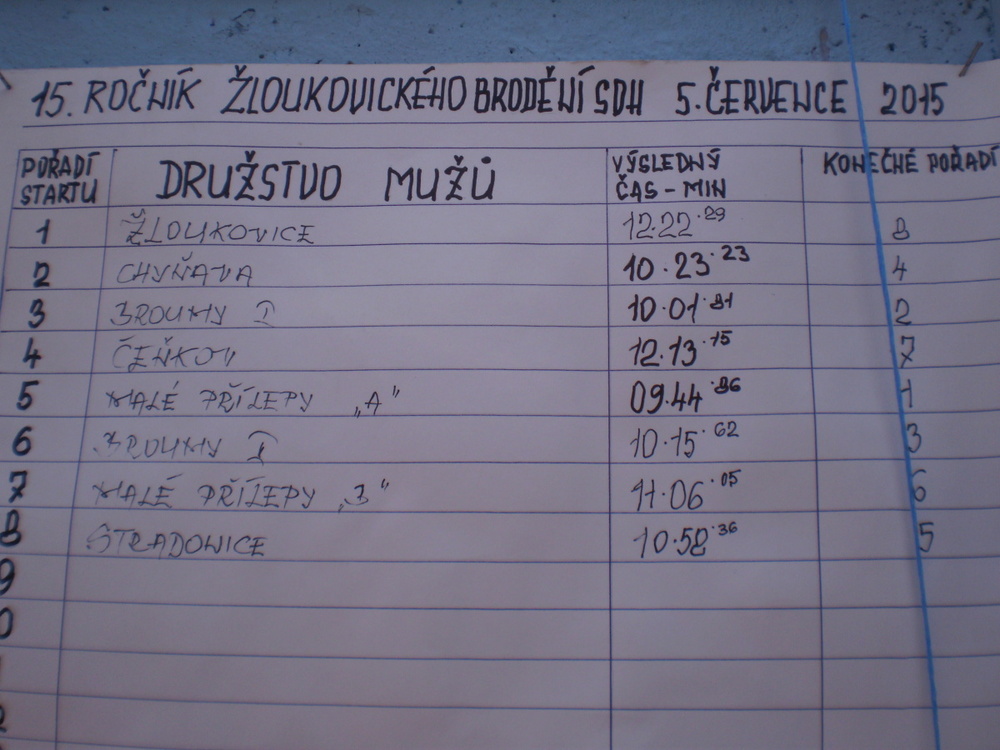 15. ROČNÍK ŽLOUKOVICKÉHO BRODĚNÍ SDH 5. ČERVENCE 2015
POŘADÍ STARTU DRUŽSTVO MUŽŮ VÝSLEDNÝ ČAS - MIN KONEČNÉ POŘADÍ
1 ŽLOUKOVICE 12.22.29 8
2 CHYŇAVA 10.23.23 4
3 BROUMY I 10.01.81 2
4 ČEŇKOV 12.13.15 7
5 MALÉ PŘÍLEPY „A" 09.44.86 1
6 BROUMY 10.15.62 3
7 MALÉ PŘÍLEPY „B" 11.06.05 6
8 STRADONICE 10.58.36 5
9
0